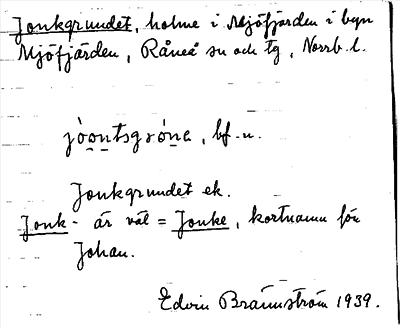 Jonkgrundet, holme i Mjöfjärden i byn
Mjöfjärden, Råneå sn och tg, Norrb. l.
bf. n.
Jonkgrundet ek.
Jonk- är väl = Jonke, kortnamn för
Johan.
Edvin Brännström 1939.